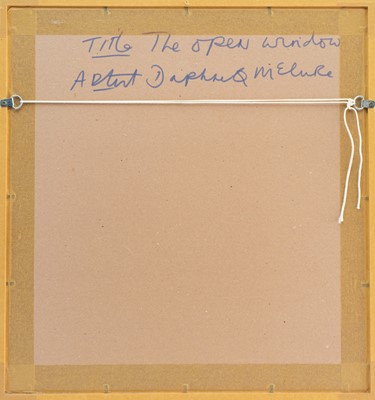 Title The open window
Artist Daphne McClure